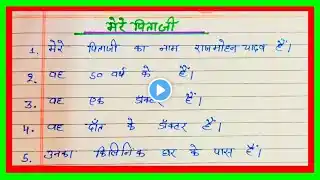 मेरे पिताजी
1. मेरे पिताजी का नाम राजमोहन यादव हैं।
2. वह 50 वर्ष के हैं।
3. वह एक डॉक्टर हैं।
4. वह दाँत के डॉक्टर हैं।
5. उनका क्लिनिक घर के पास हैं।